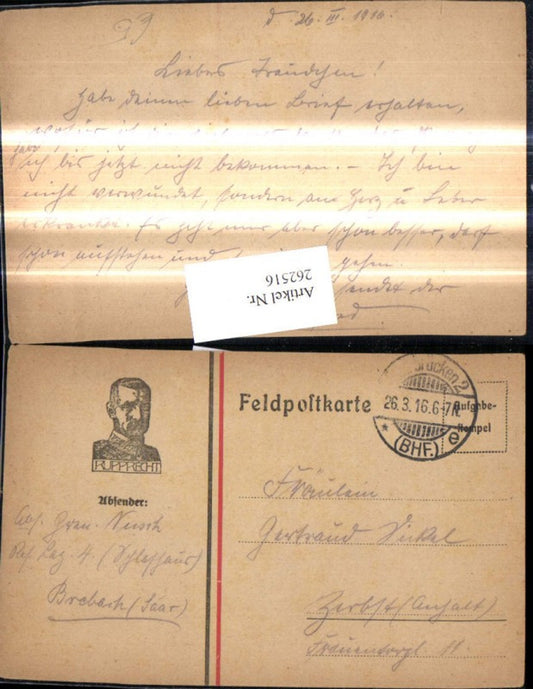 d. 26. III. 1916.
Liebes Freundchen!
Habe deinen lieben Brief erhalten,
ich bis jetzt nicht bekommen. – Ich bin
nicht verwundet, sondern am Herz u. Leber
erkrankt. Es geht mir aber schon besser, darf
schon aufstehen und gehen.
sendet der
Artikel Nr.
262516
RUPPRECHT
Absender:
Res. Laz. 4. (Schlafhaus)
Brebach (Saar)
Feldpostkarte
brücken 2
26.3.16.6-7N.
* (BHF.) e
Aufgabe-
stempel
Fräulein
Gertraud Nickel
Zerbst (Anhalt)